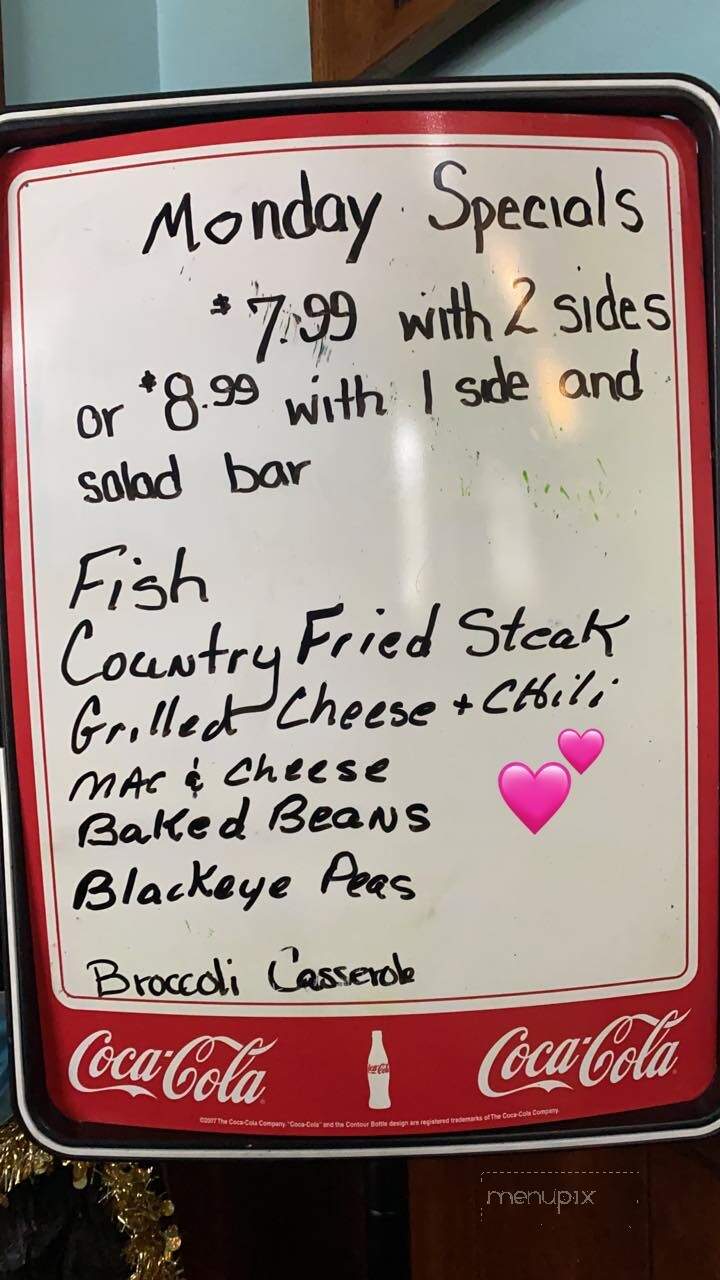 Monday Specials
$7.99 with 2 sides
or $8.99 with 1 side and
salad bar
Fish
Country Fried Steak
Grilled Cheese + Chili
MAC & Cheese
Baked Beans
Blackeye Peas
Broccoli Casserole
Coca-Cola Coca-Cola Coca-Cola
©2007 The Coca-Cola Company. "Coca-Cola" and the Contour Bottle design are registered trademarks of The Coca-Cola Company.
menupix